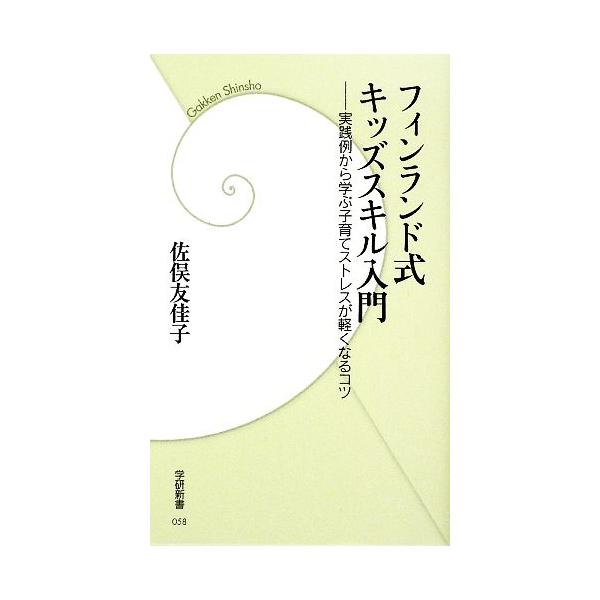 フィンランド式
キッズスキル入門
――実践例から学ぶ子育てストレスが軽くなるコツ
佐俣友佳子
Gakken Shinsho
学研新書
058